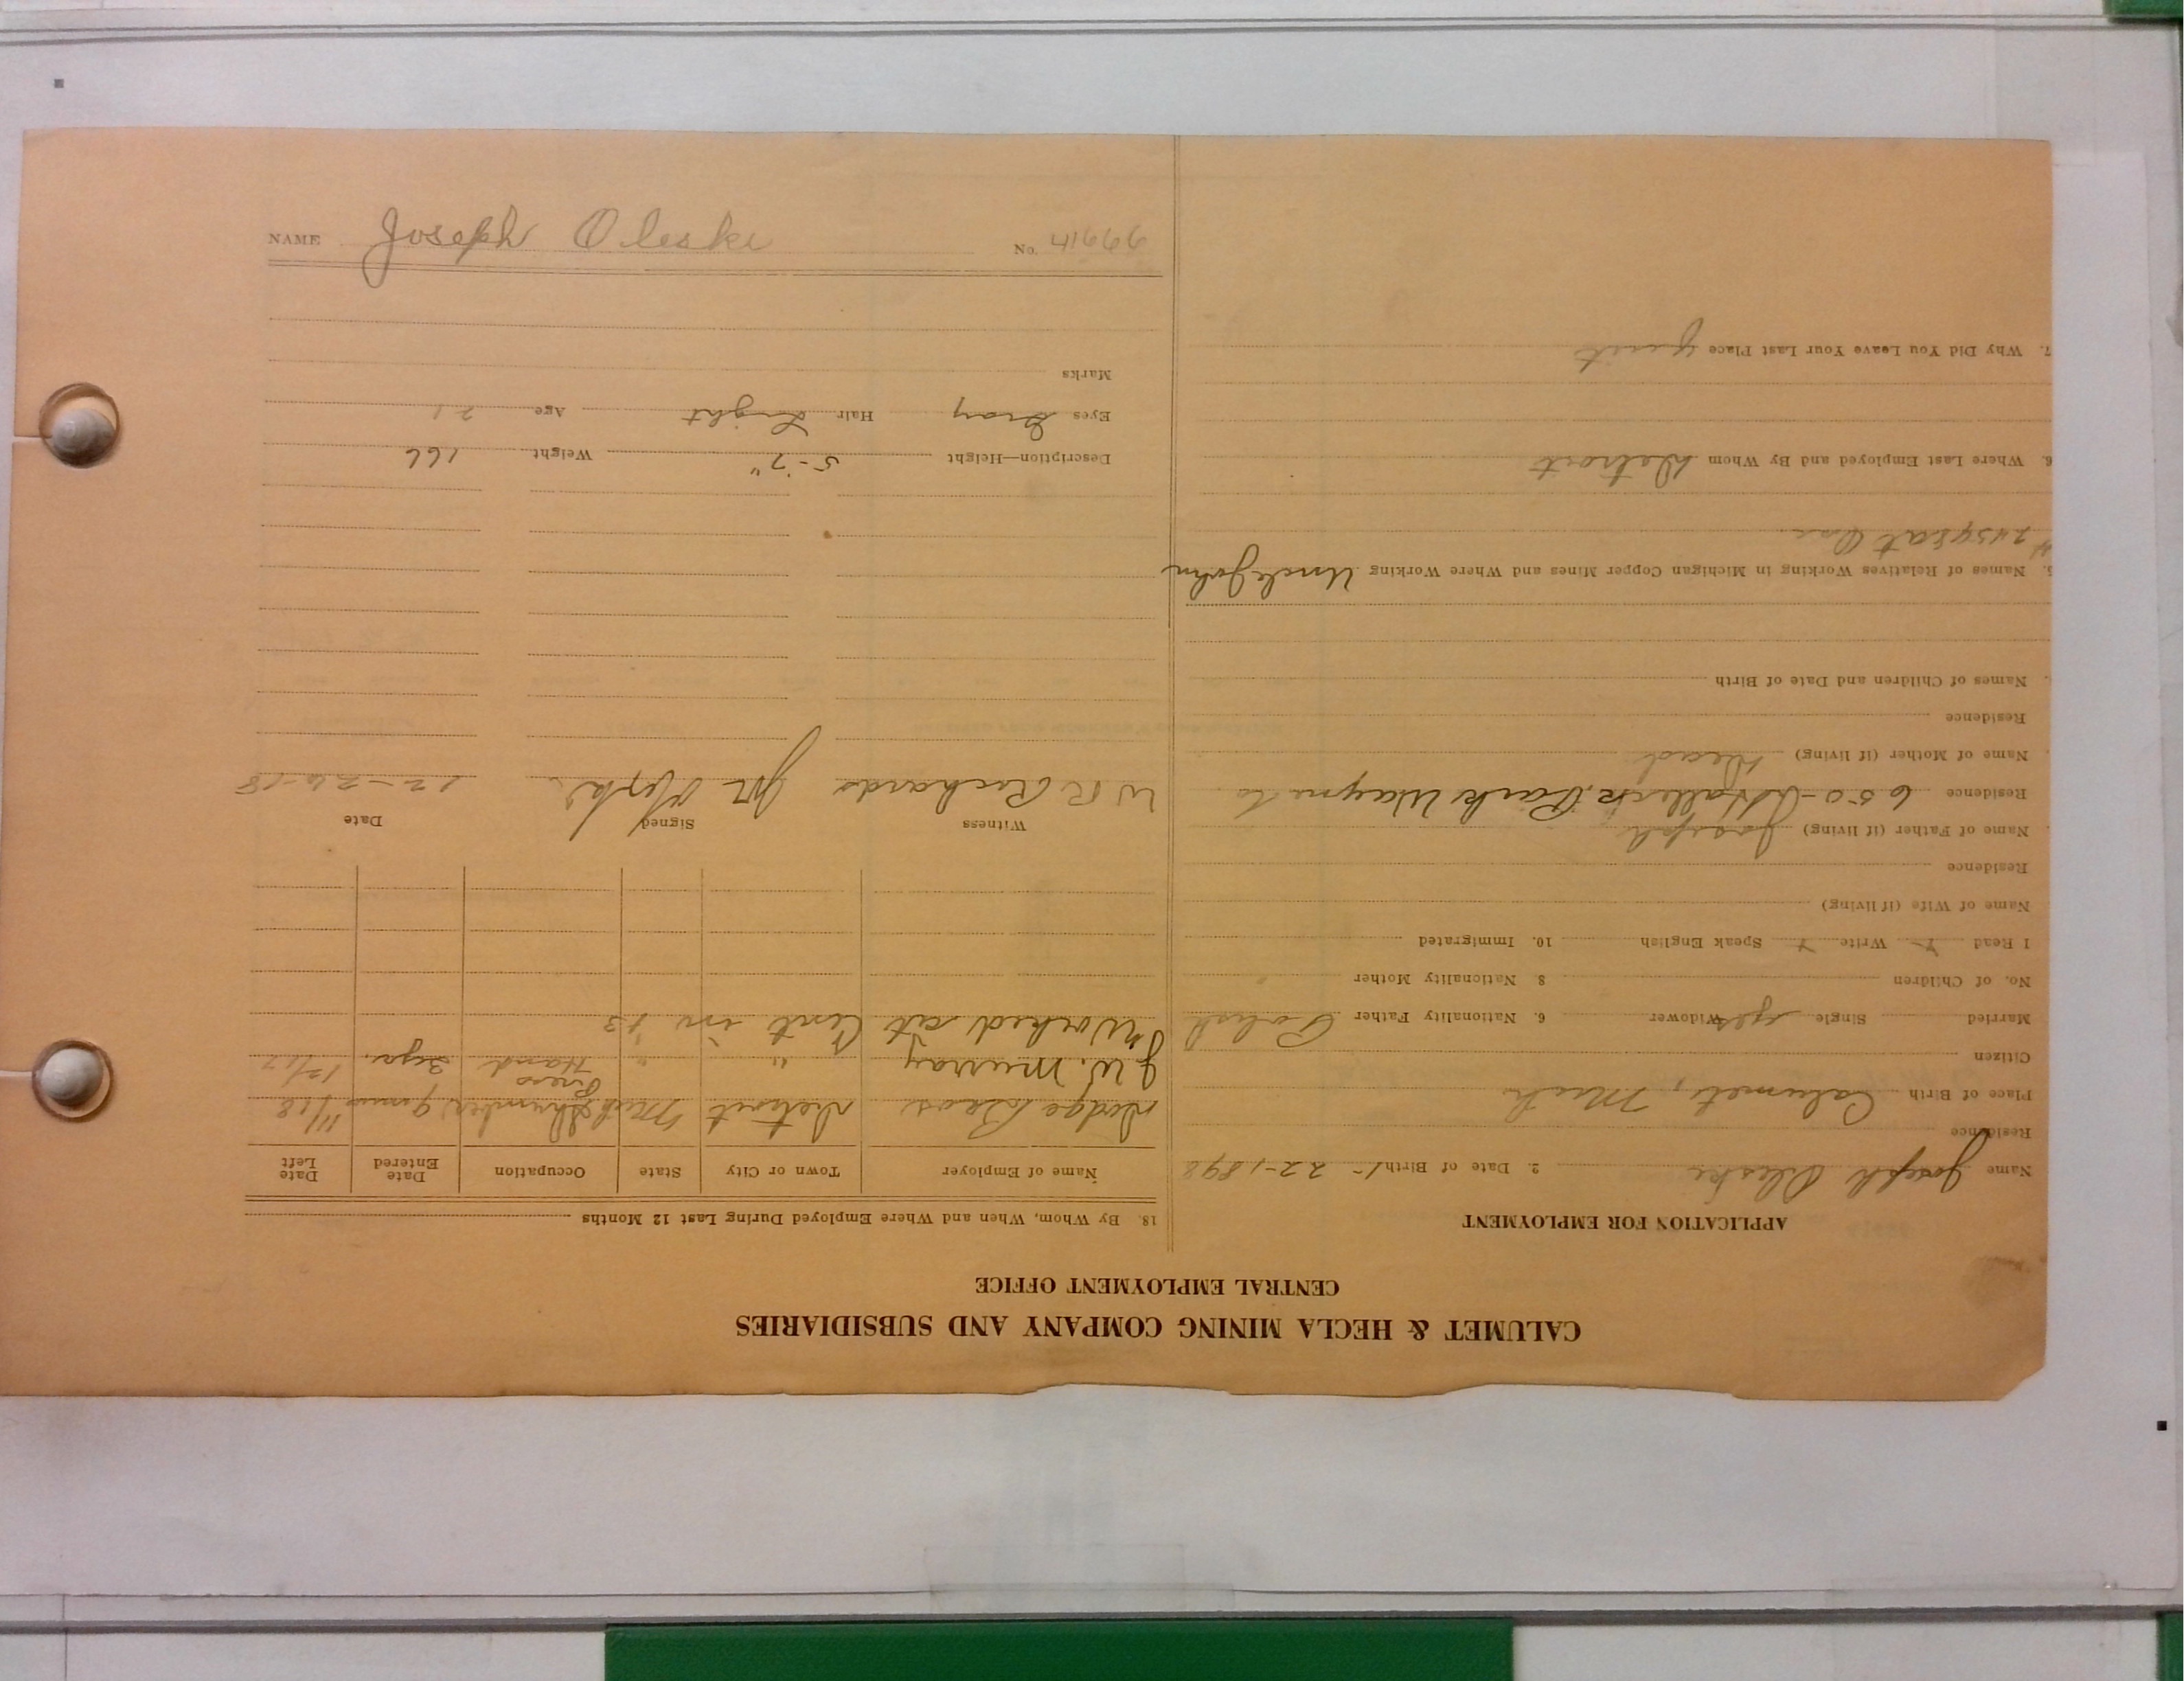 CALUMET & HECLA MINING COMPANY AND SUBSIDIARIES
CENTRAL EMPLOYMENT OFFICE
APPLICATION FOR EMPLOYMENT
Name Joseph Oleski 2. Date of Birth 1-22-1898
Residence
Place of Birth Calumet, Mich
Citizen
Married Single yes Widower 6. Nationality Father Polish
No. of Children 8 Nationality Mother
I Read Y Write Y Speak English 10. Immigrated
Name of Wife (if living)
Residence
Name of Father (if living) Joseph
Residence 650- Park Wayne Co
Name of Mother (if living) Dead
Residence
Names of Children and Date of Birth
5. Names of Relatives Working in Michigan Copper Mines and Where Working Uncle John
at
6. Where Last Employed and By Whom Detroit
7. Why Did You Leave Your Last Place quit
18. By Whom, When and Where Employed During Last 12 Months
Name of Employer Town or City State Occupation Date Entered Date Left
Dodge Bros Detroit Mich 11/18
J. W. Murray " " Press Hand 12/17
Worked at Cent in 13
Witness Signed Date
W R Richards 12-26-18
Description—Height 5-7" Weight 166
Eyes Gray Hair Light Age 21
Marks
NAME Joseph Oleski No. 41666